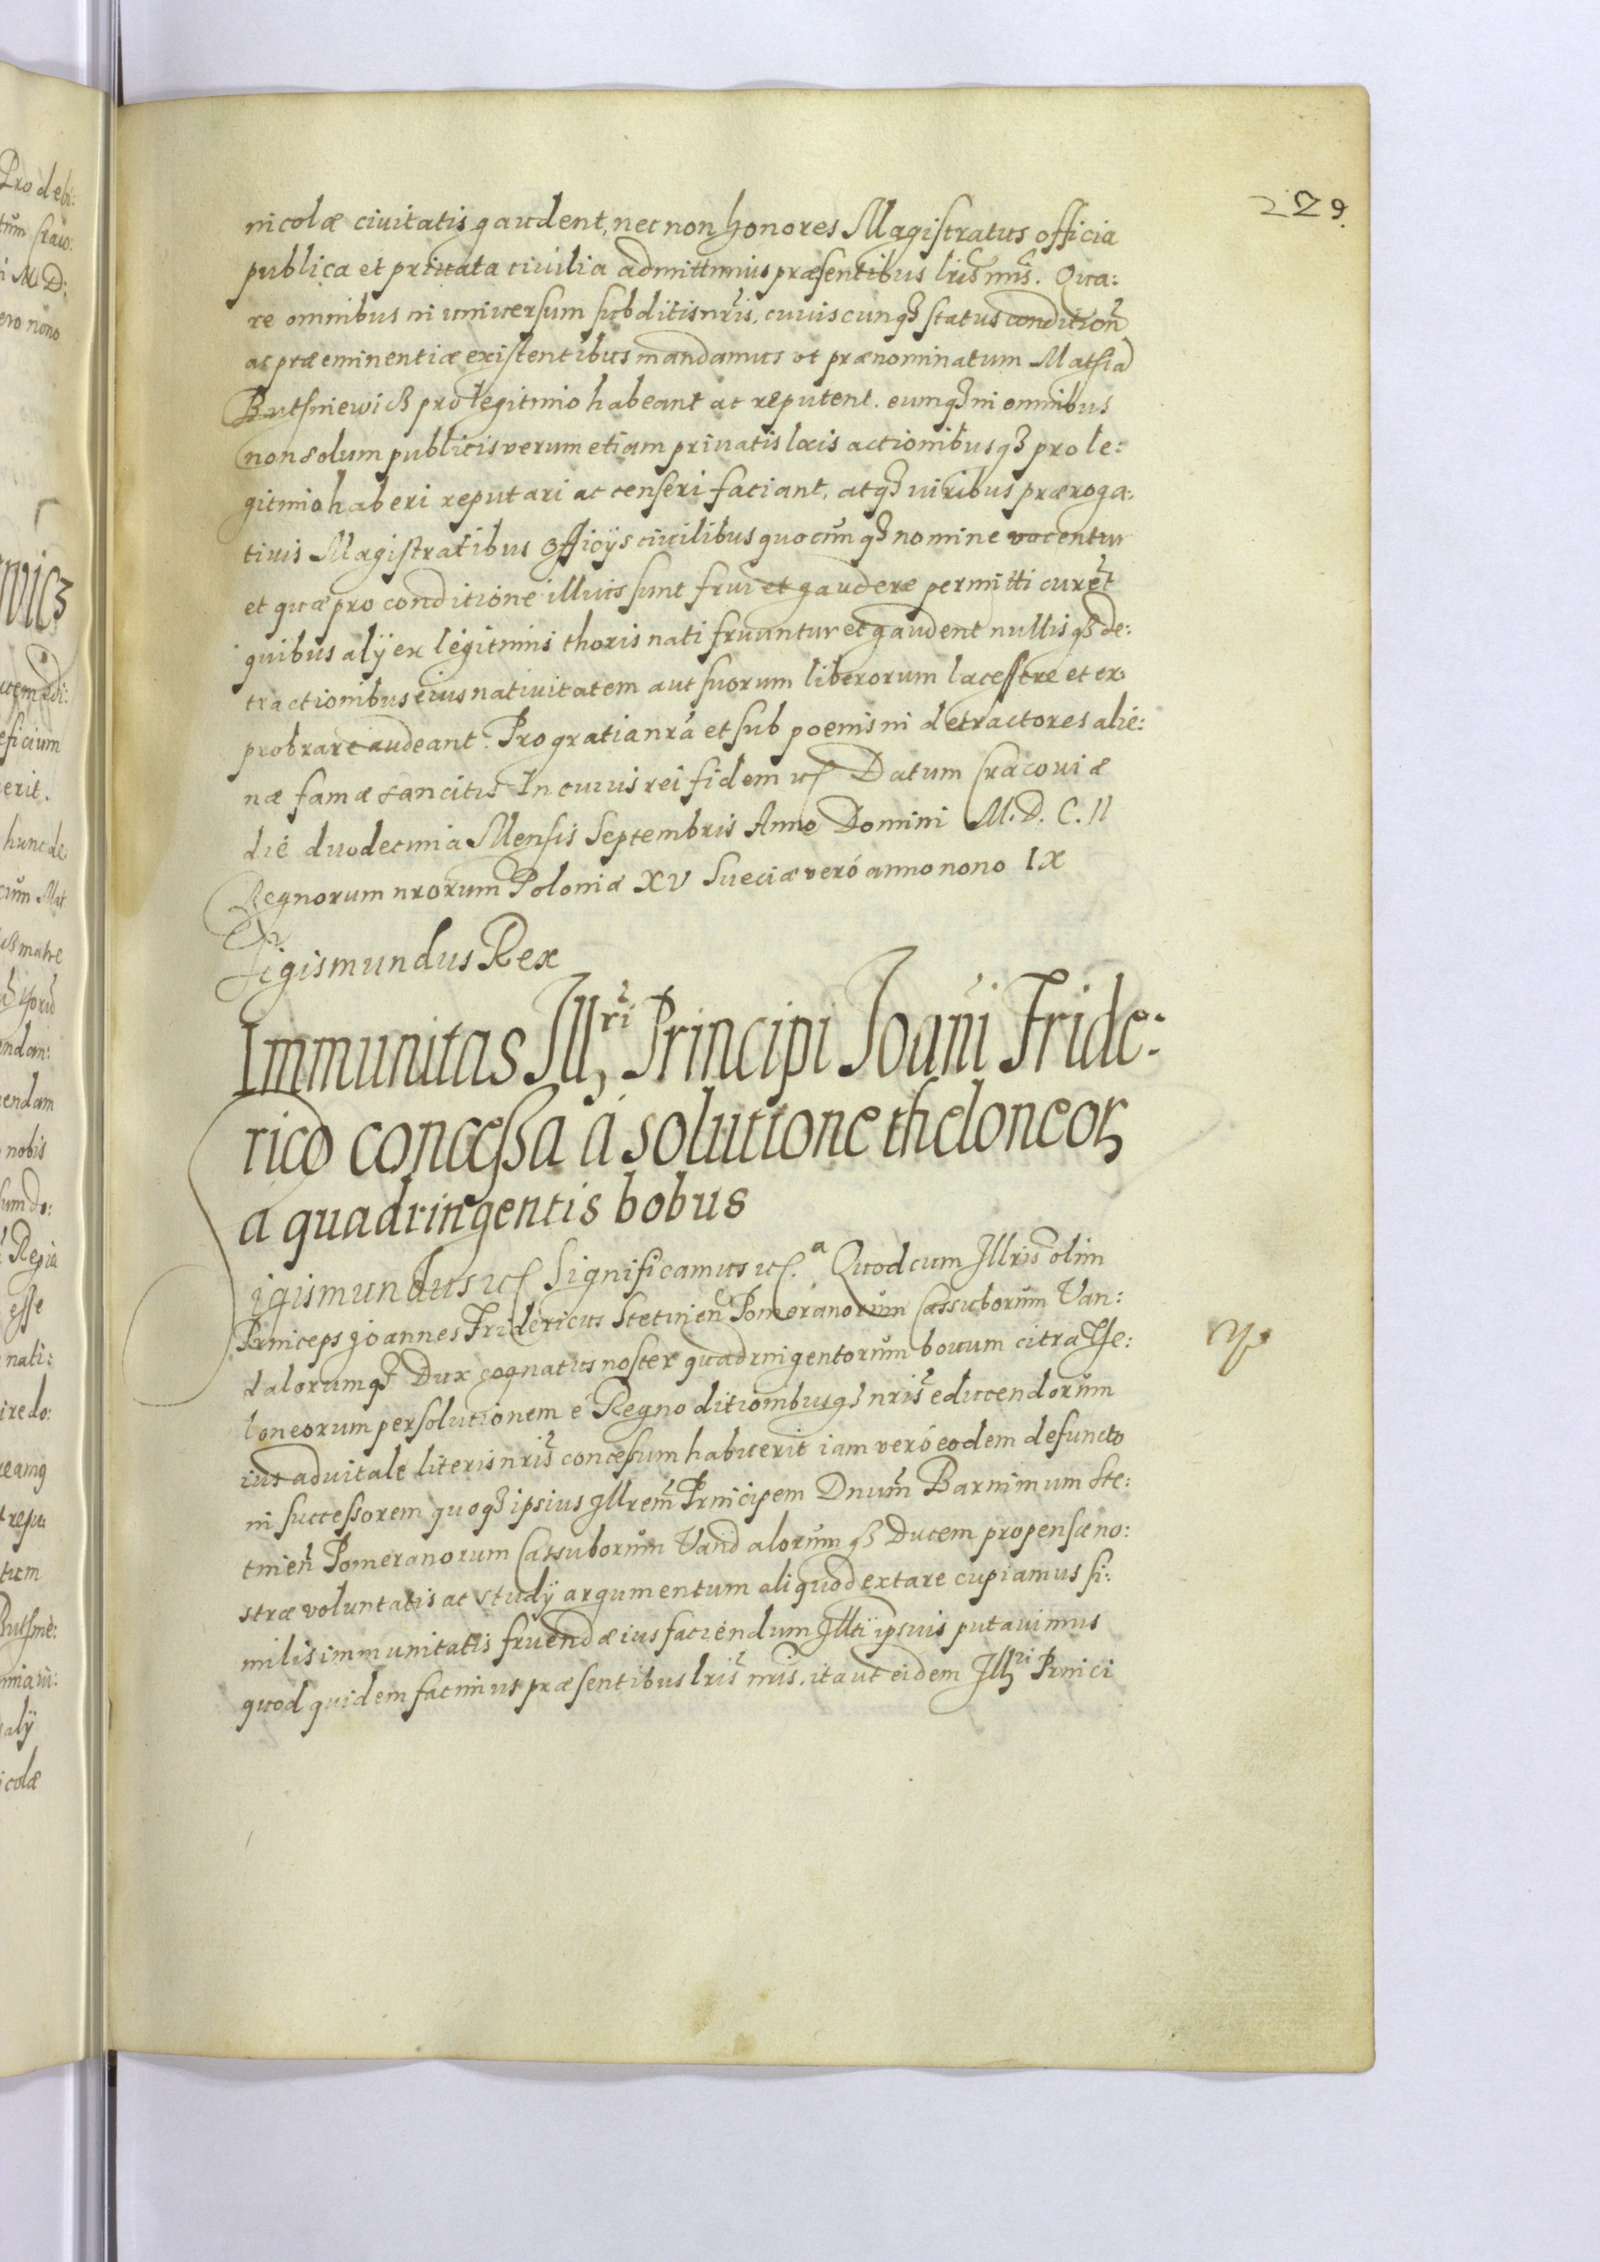 229.
incolæ civitatis gaudent, nec non honores Magistratus officia
publica et privata civilia admittimus præsentibus lris nris. Qua:
re omnibus in universum subditis nris, cuiuscunqꝫ status condition̄
ac præeminentiæ existentibus mandamus ut prænominatum Mathiā
pro legitimo habeant ac reputent. eumqꝫ in omnibus
non solum publicis verum etiam privatis locis actionibusqꝫ pro le:
gitimo haberi reputari ac censeri faciant, atqꝫ iuribus præroga:
tivis Magistratibus Officijs civilibus quocūnqꝫ nomine vocentur
et quæ pro conditione illius sunt frui et gaudere permitti curēt
quibus alÿ ex legitimis thoris nati fruuntur et gaudent nullisqꝫ de:
tractionibus eius nativitatem aut suorum liberorum lacessere et ex
probrare audeant. Pro gratia nrā et sub poenis in detractores alie:
næ famæ sancitis In cuius rei fidem etc Datum Cracoviæ
die duodecima Mensis Septembris Anno Domini M.D.C.II
Regnorum nrorum Poloniæ XV Sueciæ veró anno nono IX
Sigismundus Rex
Immunitas Illri, Principi Joan̄i Fride:
rico concessa á solutione theloneoꝝ
a quadringentis bobus
Sigismundus etc Significamus etc. a Quod cum Illris olim
Princeps Joannes Fridericus Stetinen̄ Pomeranorūm Cassuborūm Van:
dalorumqꝫ Dux cognatus noster quadringentorūm bouum citra The:
loneorum persolutionem é Regno ditionibusqꝫ nris educendorūm
ius advitale literis nris concessum habuerit iam veró eodem defuncto
in successorem quoqꝫ ipsius Illrem Principem Dnum Barnimum Ste:
tinen̄ Pomeranorum Cassuborūm Vandalorūmqꝫ Ducem propensæ no:
stræ voluntatis ac studÿ argumentum aliquod extare cupiamus si:
milis immunitatis fruendæ ius faciendum Illti ipsius putavimus
quod quidem facimus præsentibus lris nris, ita ut eidem Illri Princi